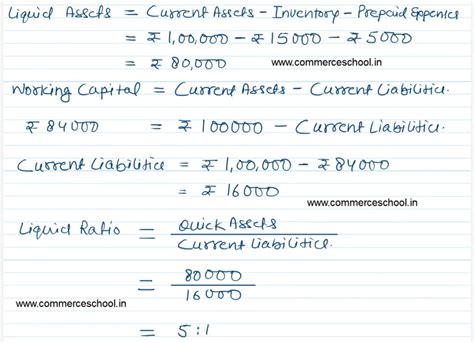 Liquid Assets = Current Assets - Inventory - Prepaid Expenses
= ₹ 1,00,000 - ₹ 15000 - ₹ 5000
= ₹ 80,000 www.commerceschool.in
Working Capital = Current Assets - Current Liabilities.
₹ 84000 = ₹ 100000 - Current Liabilities.
Current Liabilities = ₹ 1,00,000 - ₹ 84000
= ₹ 16000
www.commerceschool.in
Liquid Ratio = Quick Assets
Current Liabilities.
= 80000
16000
www.commerceschool.in
= 5:1